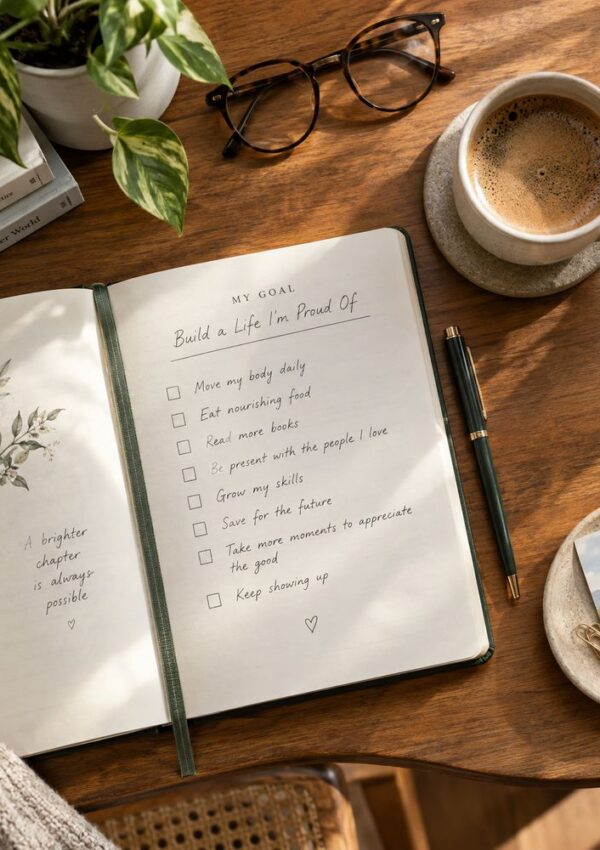 ence
er World
MY GOAL
Build a Life I'm Proud Of
Move my body daily
Eat nourishing food
Read more books
Be present with the people I love
Grow my skills
Save for the future
Take more moments to appreciate
the good
Keep showing up
A brighter
chapter
is always
possible